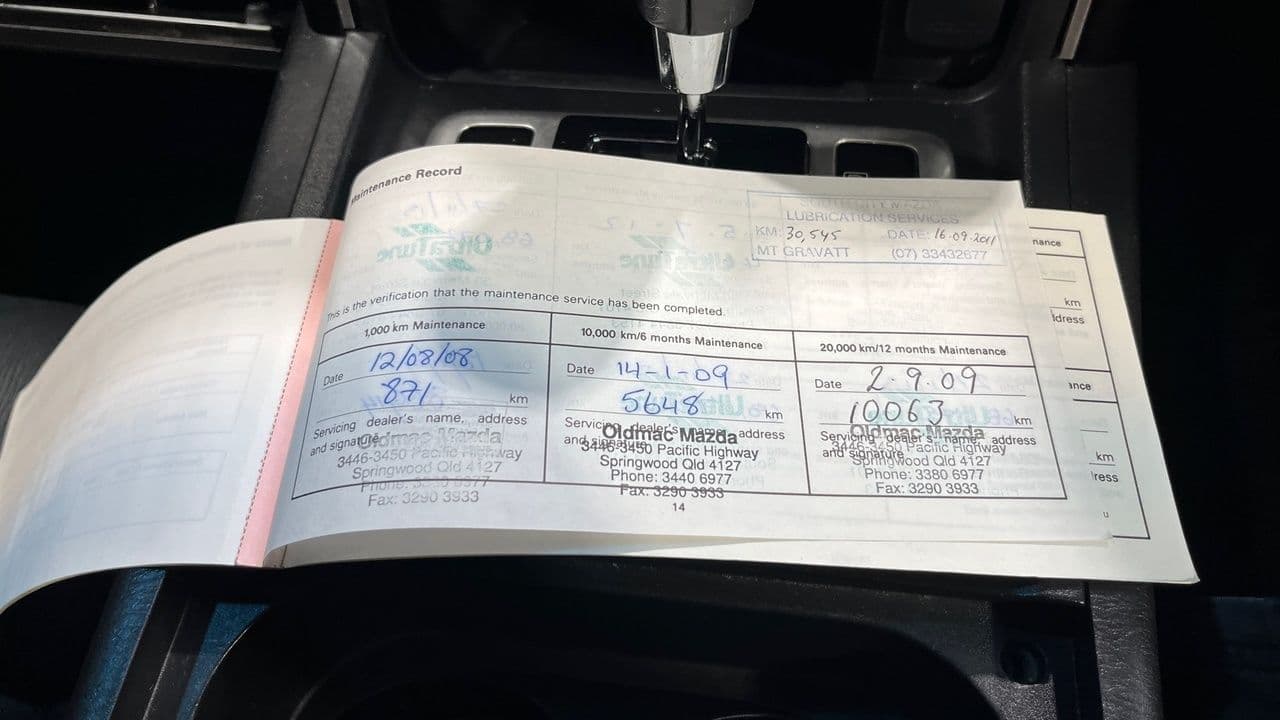 Maintenance Record
LUBRICATION SERVICES
KM: 30,545 DATE: 16-09-2011
MT GRAVATT (07) 33432677
This is the verification that the maintenance service has been completed.
1,000 km Maintenance
Date 12/08/08
871 km
Servicing dealer's name, address
and signature
Oldmac Mazda
3446-3450 Pacific Highway
Springwood Qld 4127
Phone:
Fax: 3290 3933
10,000 km/6 months Maintenance
Date 14-1-09
5648 km
Servicing dealer's name, address
and signature
Oldmac Mazda
3446-3450 Pacific Highway
Springwood Qld 4127
Phone: 3440 6977
Fax: 3290 3933
20,000 km/12 months Maintenance
Date 2.9.09
10063 km
Servicing dealer's name, address
and signature
Oldmac Mazda
3446-3450 Pacific Highway
Springwood Qld 4127
Phone: 3380 6977
Fax: 3290 3933
14
nance
km
ldress
ance
km
ress
u